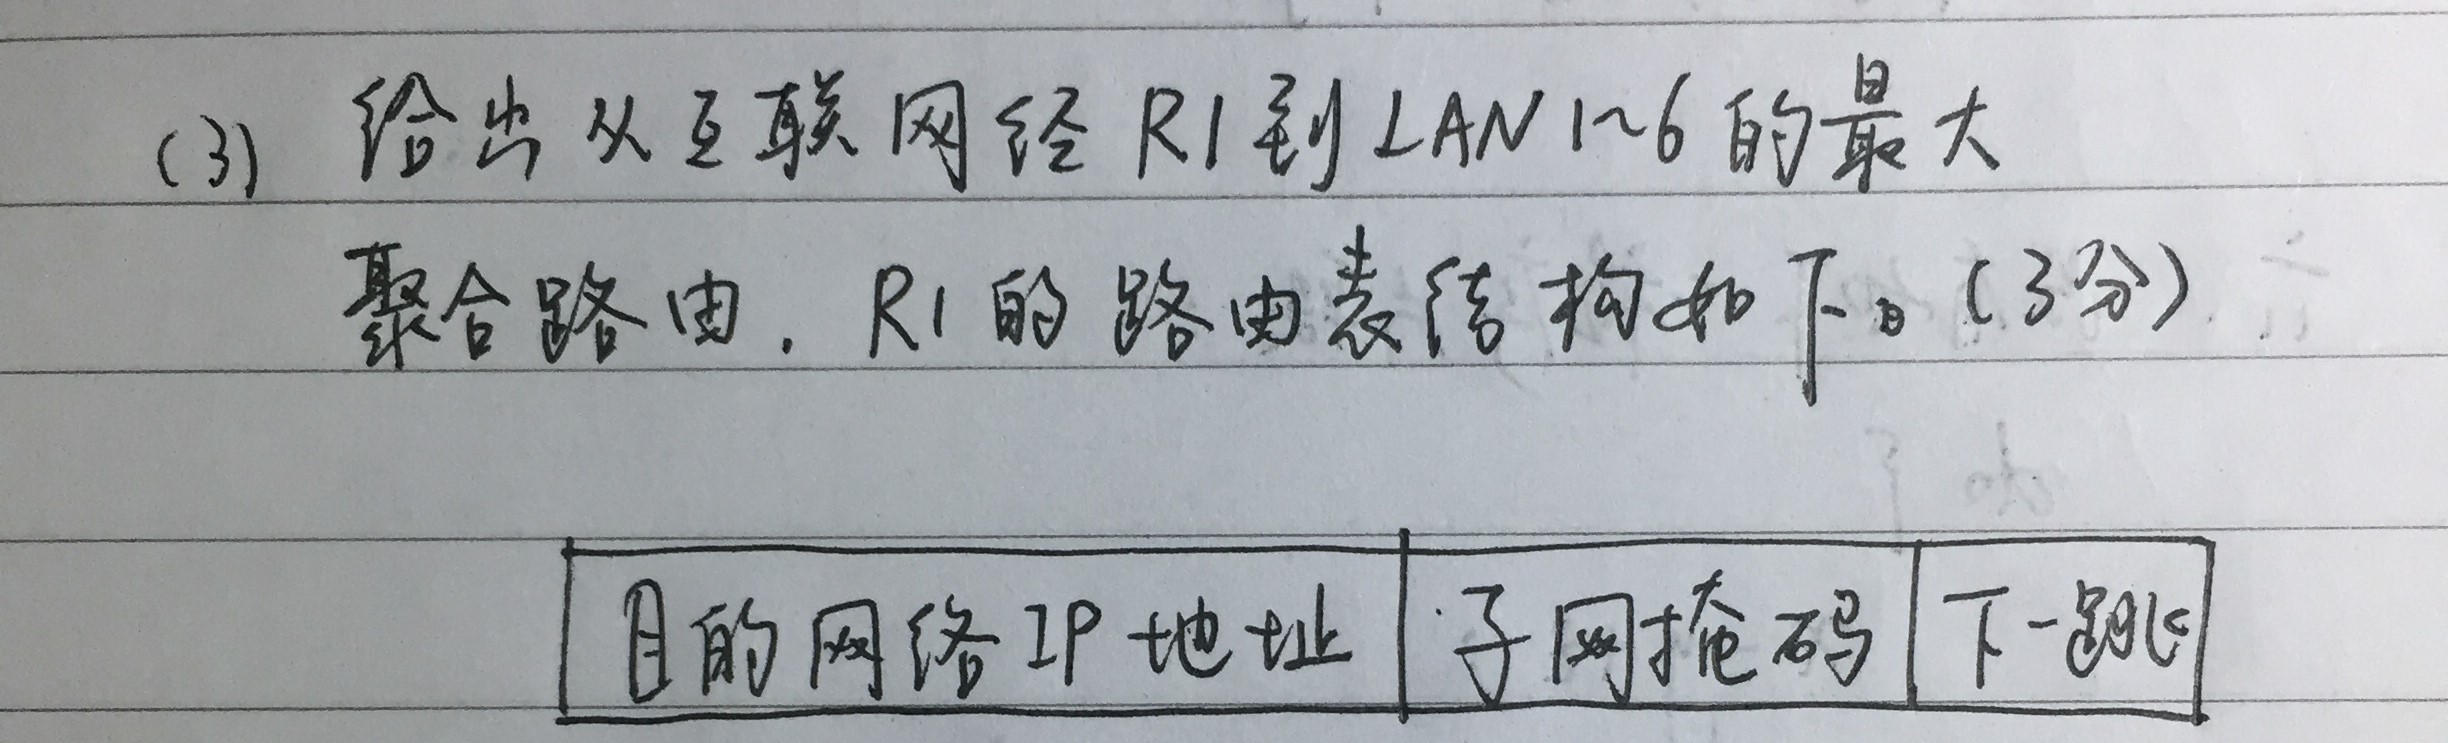 (3) 给出从互联网经R1到LAN1~6的最大
聚合路由. R1的路由表结构如下。(3分)
目的网络IP地址 子网掩码 下一跳